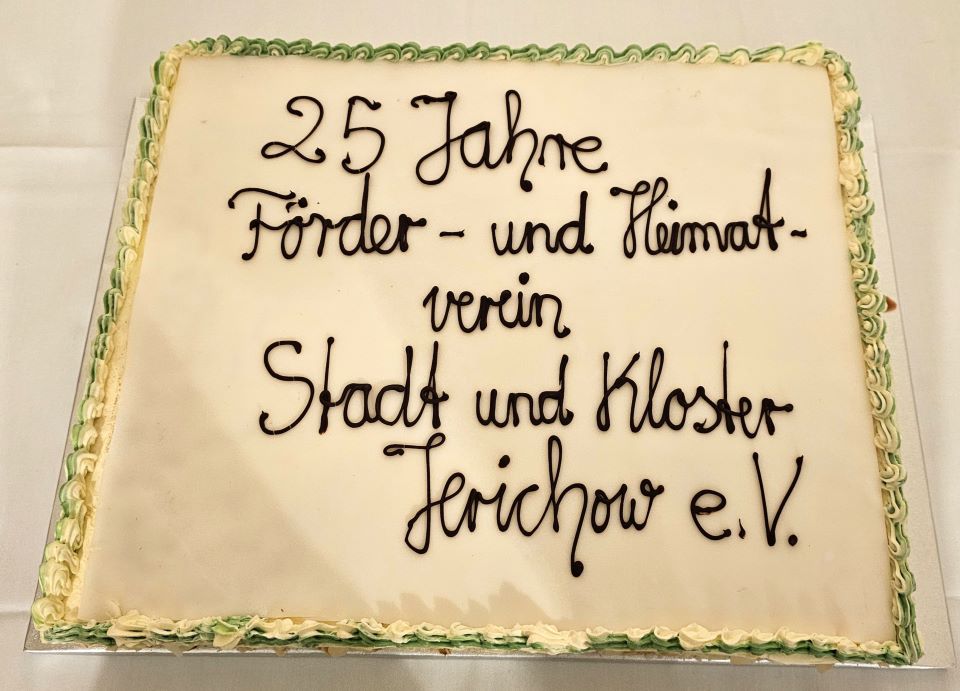 25 Jahre
Förder - und Heimat-
verein
Stadt und Kloster
Jerichow e.V.